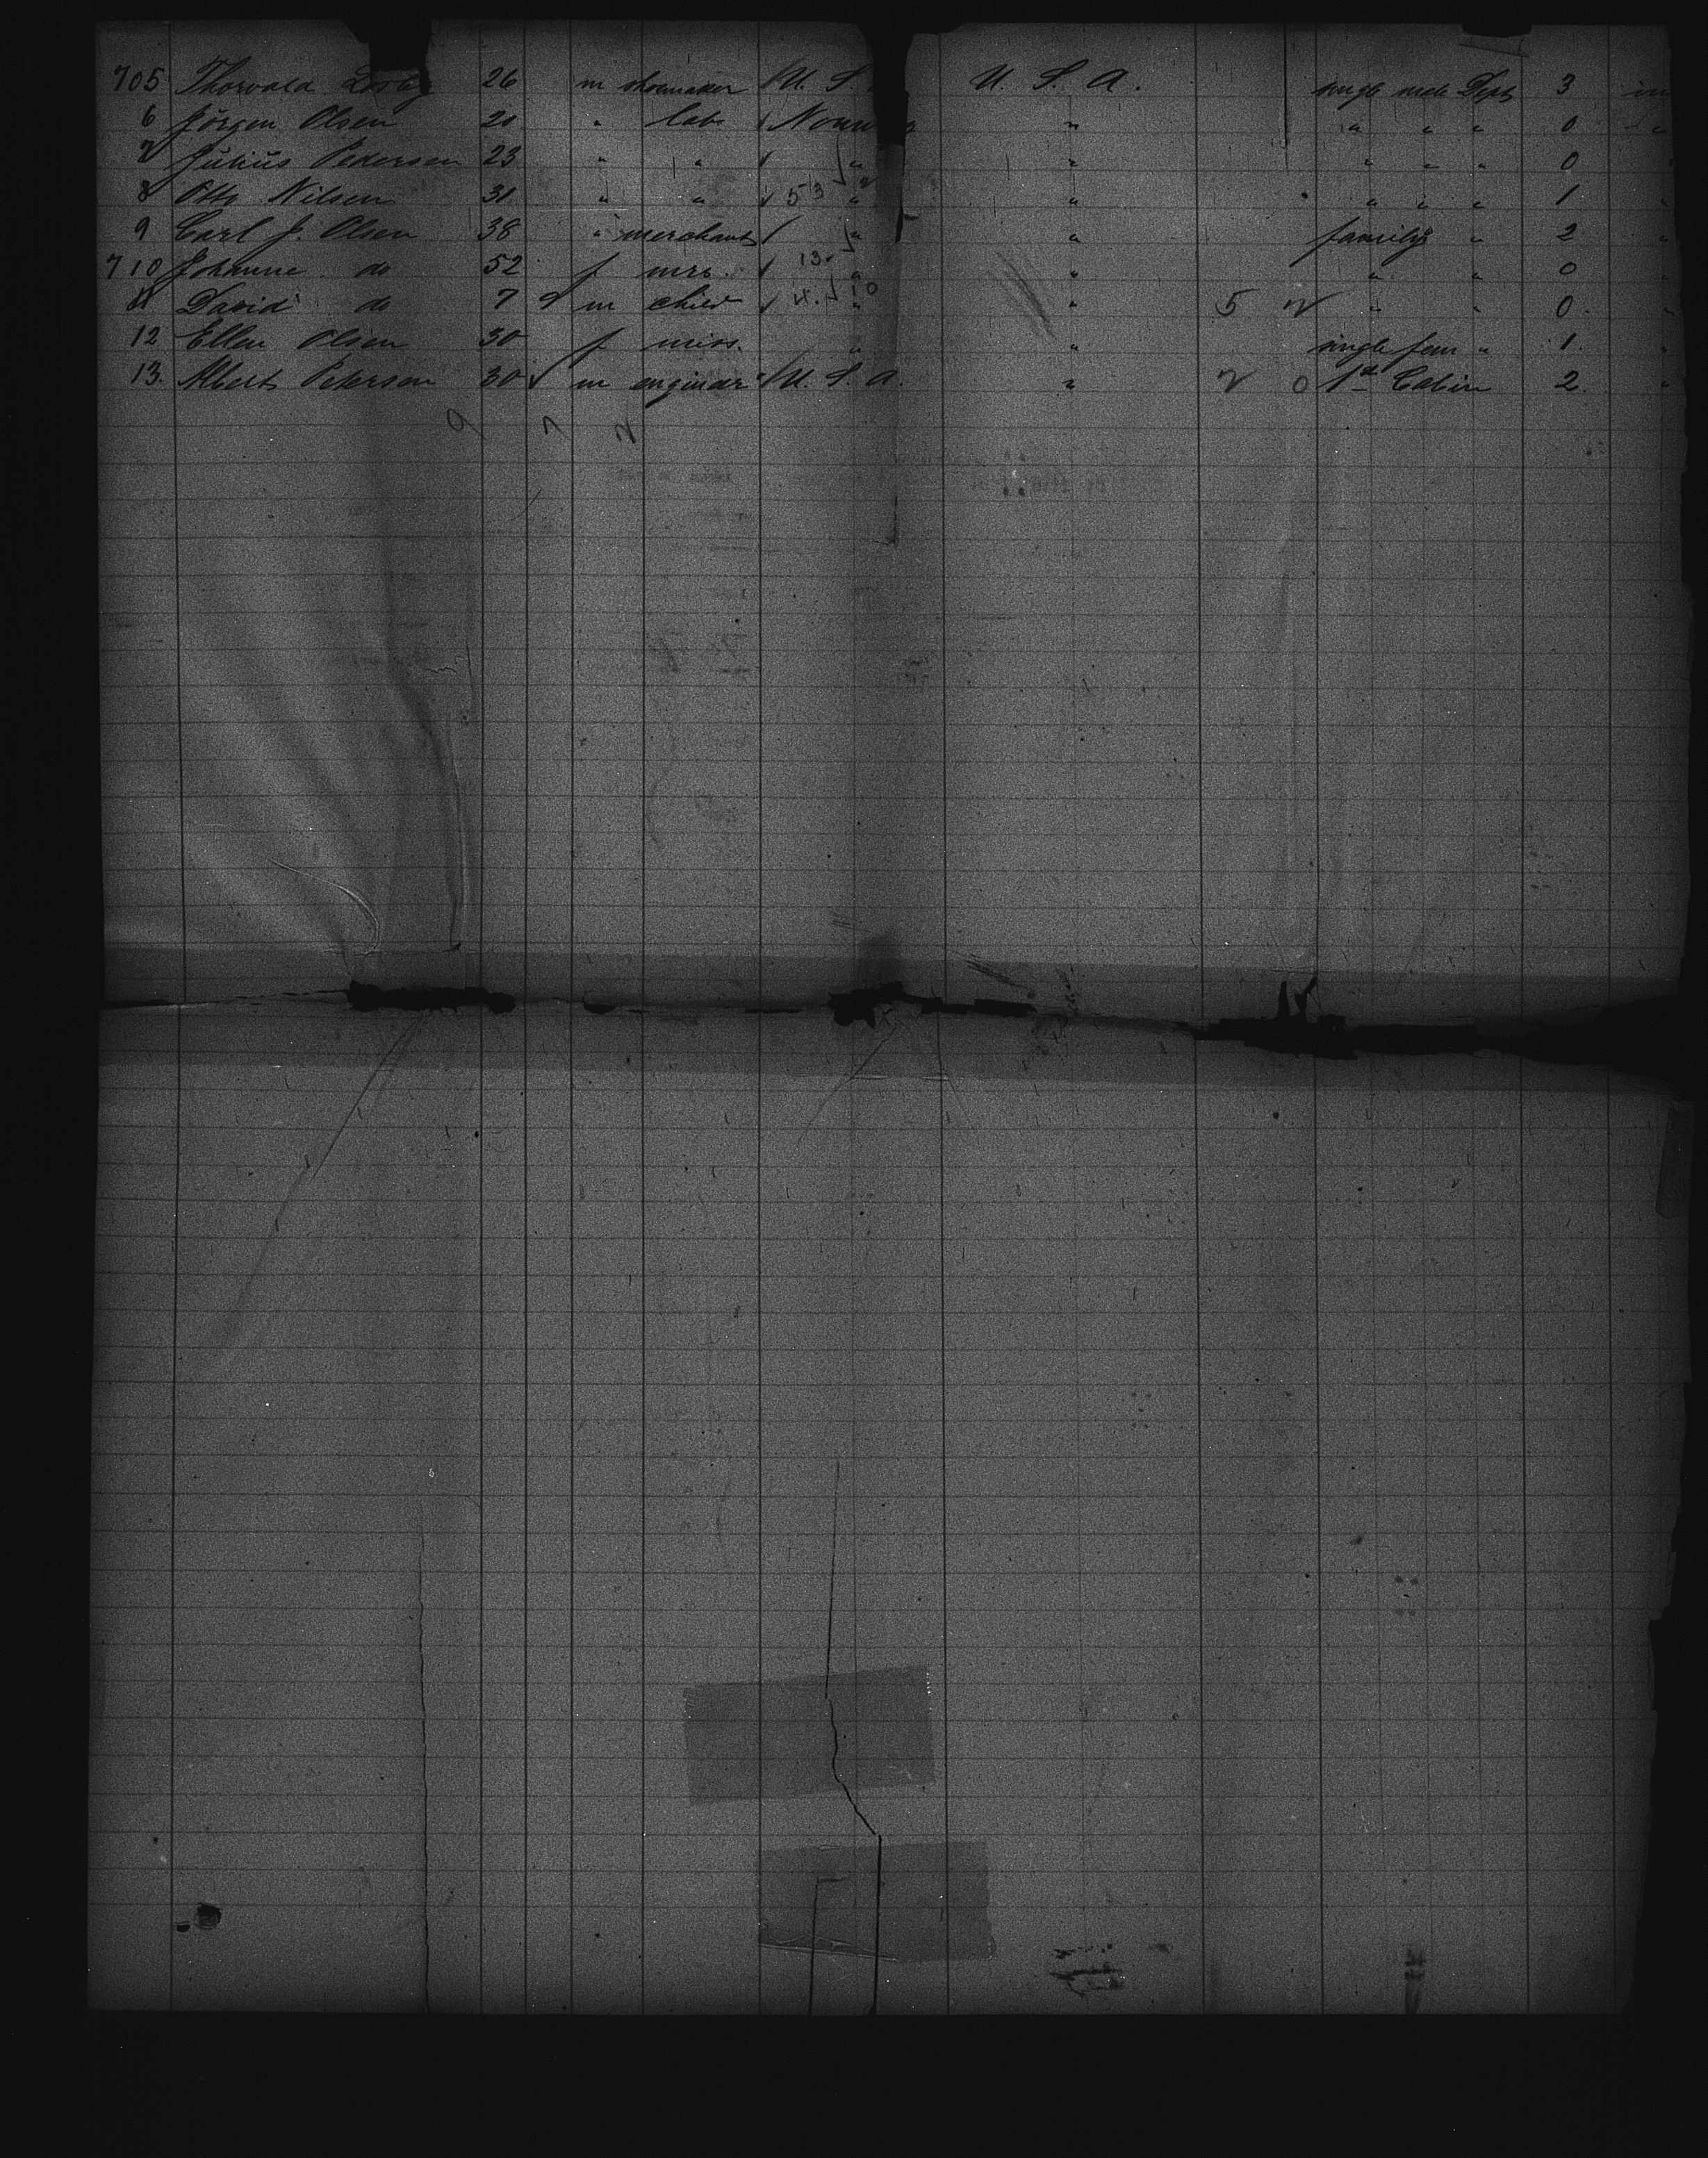 705 Thorvald 26 m shoemaker U. S. U. S. A. single male Dept 3
6 Jörgen Olsen 20 " lab. Norway " " " " 0 "
7 Julius Pedersen 23 " " " " " " " 0
8 Otto Nilsen 31 " " 53 " " " " " 1 "
9 Carl J. Olsen 38 " merchant " " family " 2 "
710 Johanne do 52 f mrs. 13 " " " " 0
11 David do 7 m child " " 5 2 " " 0 "
12 Ellen Olsen 30 f miss. " " single fem " 1 "
13 Albert Peterson 30 m engineer U. S. A. " 2 0 1st Cabin 2 "
9 7 2